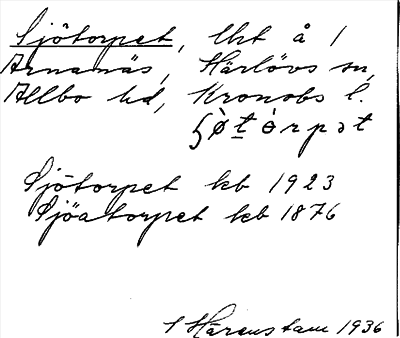 Sjötorpet, lht å 1
Arnanäs, Härlövs sn,
Allbo hd, Kronobs l.
ʃø̀t̠òrpət
Sjötorpet kb 1923
Sjöatorpet kb 1876
I Härenstam 1936